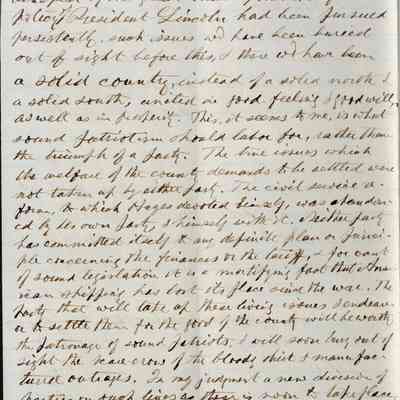 policy President Lincoln had been pursued
persistently, such issues wd have been buried
out of sight before this, & there wd have been
a solid country, instead of a solid north &
a solid south, united in good feeling & good will,
as well as in property. This, it seems to me, is what
sound patriotism should labor for, rather than
the triumph of a party. The true issues which
the welfare of the country demands to be settled were
not taken up by either party. The civil service re-
form, to which Hayes devoted himself, was abandon-
ed by his own party, & himself with it. Neither party
has committed itself to any definite plan or princi-
ple concerning the finances or the tariff, & for want
of sound legislation it is a mortifying fact that Ame-
rican shipping has lost its place since the war. The
party that will take up these living issues & endeavor
to settle them for the good of the country will have with
the patronage of sound patriots, & will soon bury out of
sight the scare crow of the bloody shirt & manufac-
tured outrages. In my judgment a new division of
parties on such lines as these is soon to take place,